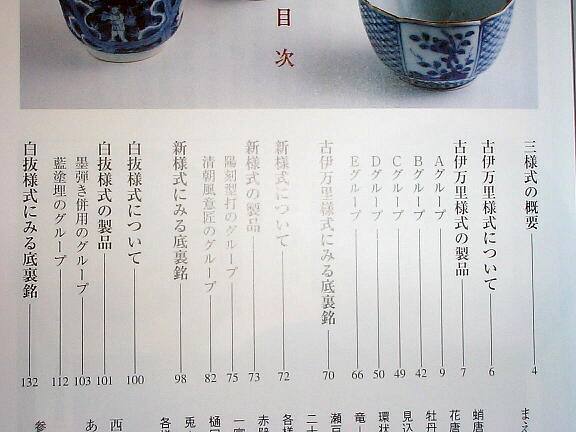 目次
三様式の概要 4
古伊万里様式について 6
古伊万里様式の製品 7
Aグループ 9
Bグループ 42
Cグループ 49
Dグループ 50
Eグループ 66
古伊万里様式にみる底裏銘 70
新様式について 72
新様式の製品 73
陽刻型打のグループ 75
清朝風意匠のグループ 82
新様式にみる底裏銘 98
白抜様式について 100
白抜様式の製品 101
墨弾き併用のグループ 103
藍塗埋のグループ 112
白抜様式にみる底裏銘 132
まえ
蛸唐
花唐
牡丹
見込
環状
竜―
瀬戸
二十
各様
赤壁
一富
樋口
兎
各様
西
あ
参